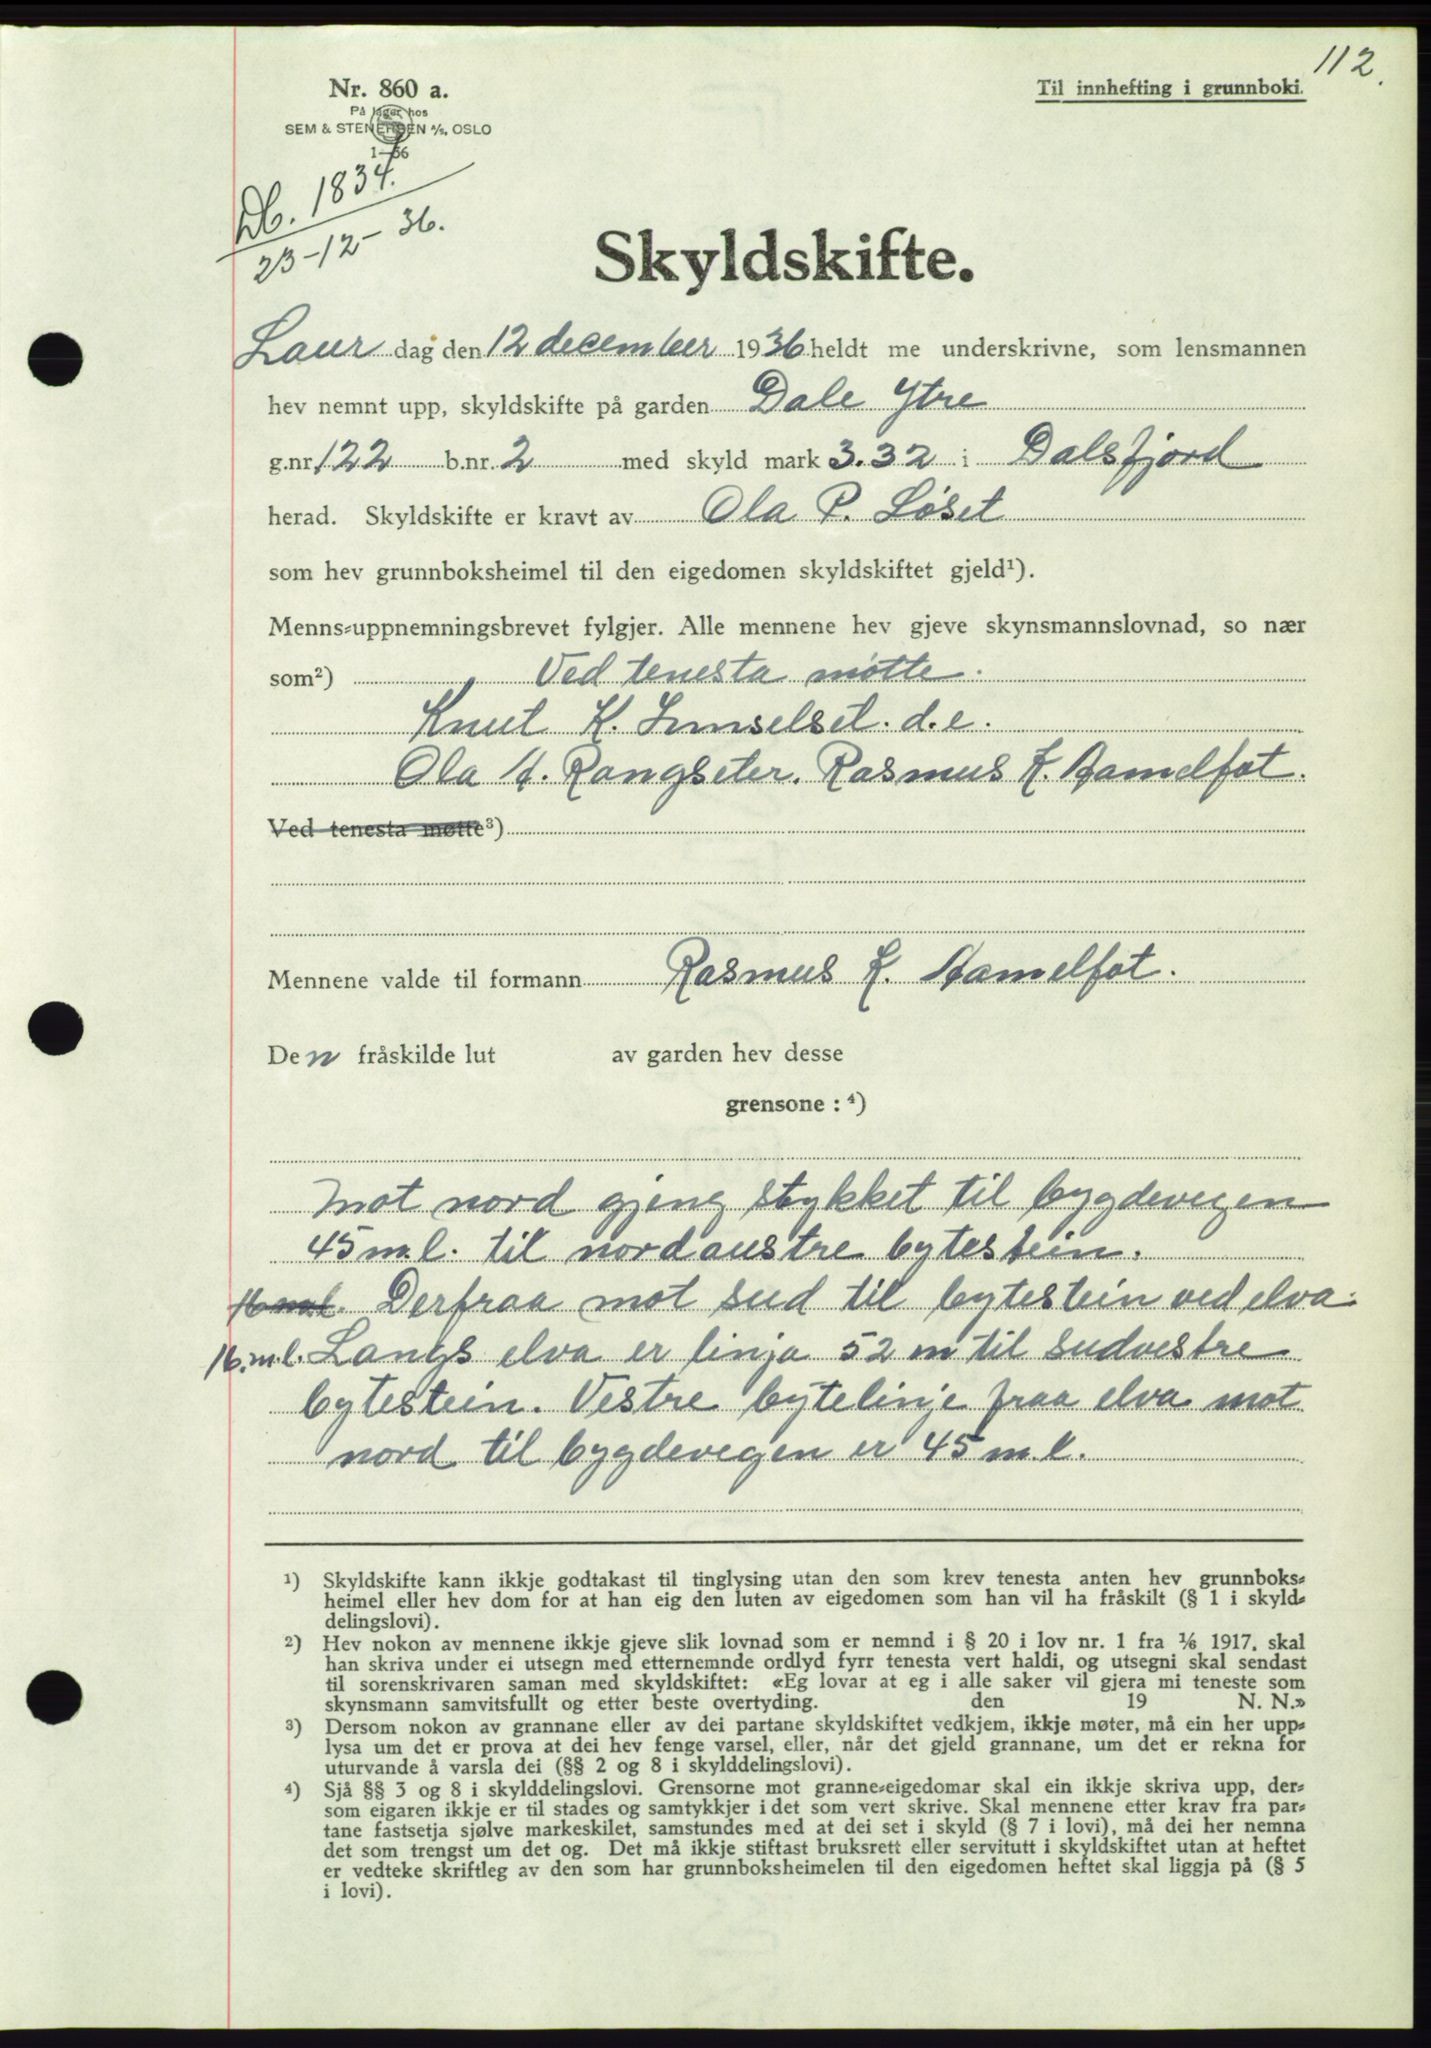 112.
Nr. 860 a.
Til innhefting i grunnboki.
På lager hos
SEM & STENERSEN A/S, OSLO
1—36
Db. 1834.
23-12-36.
Skyldskifte.
Laur dag den 12 december 1936 heldt me underskrivne, som lensmannen
hev nemnt upp, skyldskifte på garden Dale Ytre
g.nr. 122 b.nr. 2 med skyld mark 3.32 i Dalsfjord
herad. Skyldskifte er kravt av Ola P. Løset
som hev grunnboksheimel til den eigedomen skyldskiftet gjeld¹).
Menns-uppnemningsbrevet fylgjer. Alle mennene hev gjeve skynsmannslovnad, so nær
som²) Ved tenesta møtte.
Knut K. d.e.
Ola A. Rangseter. Rasmus K. Aamelfot.
Ved tenesta møtte³)
Mennene valde til formann Rasmus K. Aamelfot.
Den fråskilde lut av garden hev desse
grensone : ⁴)
Mot nord gjeng stykket til bygdevegen
45 m.l. til nordaustre bytestein.
16 m.l. Derfraa mot sud til bytestein ved elva.
16.m.l. Langs elva er linja 52 m til sudvestre
bytestein. Vestre bytelinje fraa elva mot
nord til bygdevegen er 45 m.l.
¹) Skyldskifte kann ikkje godtakast til tinglysing utan den som krev tenesta anten hev grunnboks-
heimel eller hev dom for at han eig den luten av eigedomen som han vil ha fråskilt (§ 1 i skyld-
delingslovi).
²) Hev nokon av mennene ikkje gjeve slik lovnad som er nemnd i § 20 i lov nr. 1 fra 1/6 1917, skal
han skriva under ei utsegn med etternemnde ordlyd fyrr tenesta vert haldi, og utsegni skal sendast
til sorenskrivaren saman med skyldskiftet: «Eg lovar at eg i alle saker vil gjera mi teneste som
skynsmann samvitsfullt og etter beste overtyding. den 19 N. N.»
³) Dersom nokon av grannane eller av dei partane skyldskiftet vedkjem, ikkje møter, må ein her upp-
lysa um det er prova at dei hev fenge varsel, eller, når det gjeld grannane, um det er rekna for
uturvande å varsla dei (§§ 2 og 8 i skylddelingslovi).
⁴) Sjå §§ 3 og 8 i skylddelingslovi. Grensorne mot granne-eigedomar skal ein ikkje skriva upp, der-
som eigaren ikkje er til stades og samtykkjer i det som vert skrive. Skal mennene etter krav fra par-
tane fastsetja sjølve markeskilet, samstundes med at dei set i skyld (§ 7 i lovi), må dei her nemna
det som trengst um det og. Det må ikkje stiftast bruksrett eller servitutt i skyldskiftet utan at heftet
er vedteke skriftleg av den som har grunnboksheimelen til den eigedomen heftet skal liggja på (§ 5
i lovi).